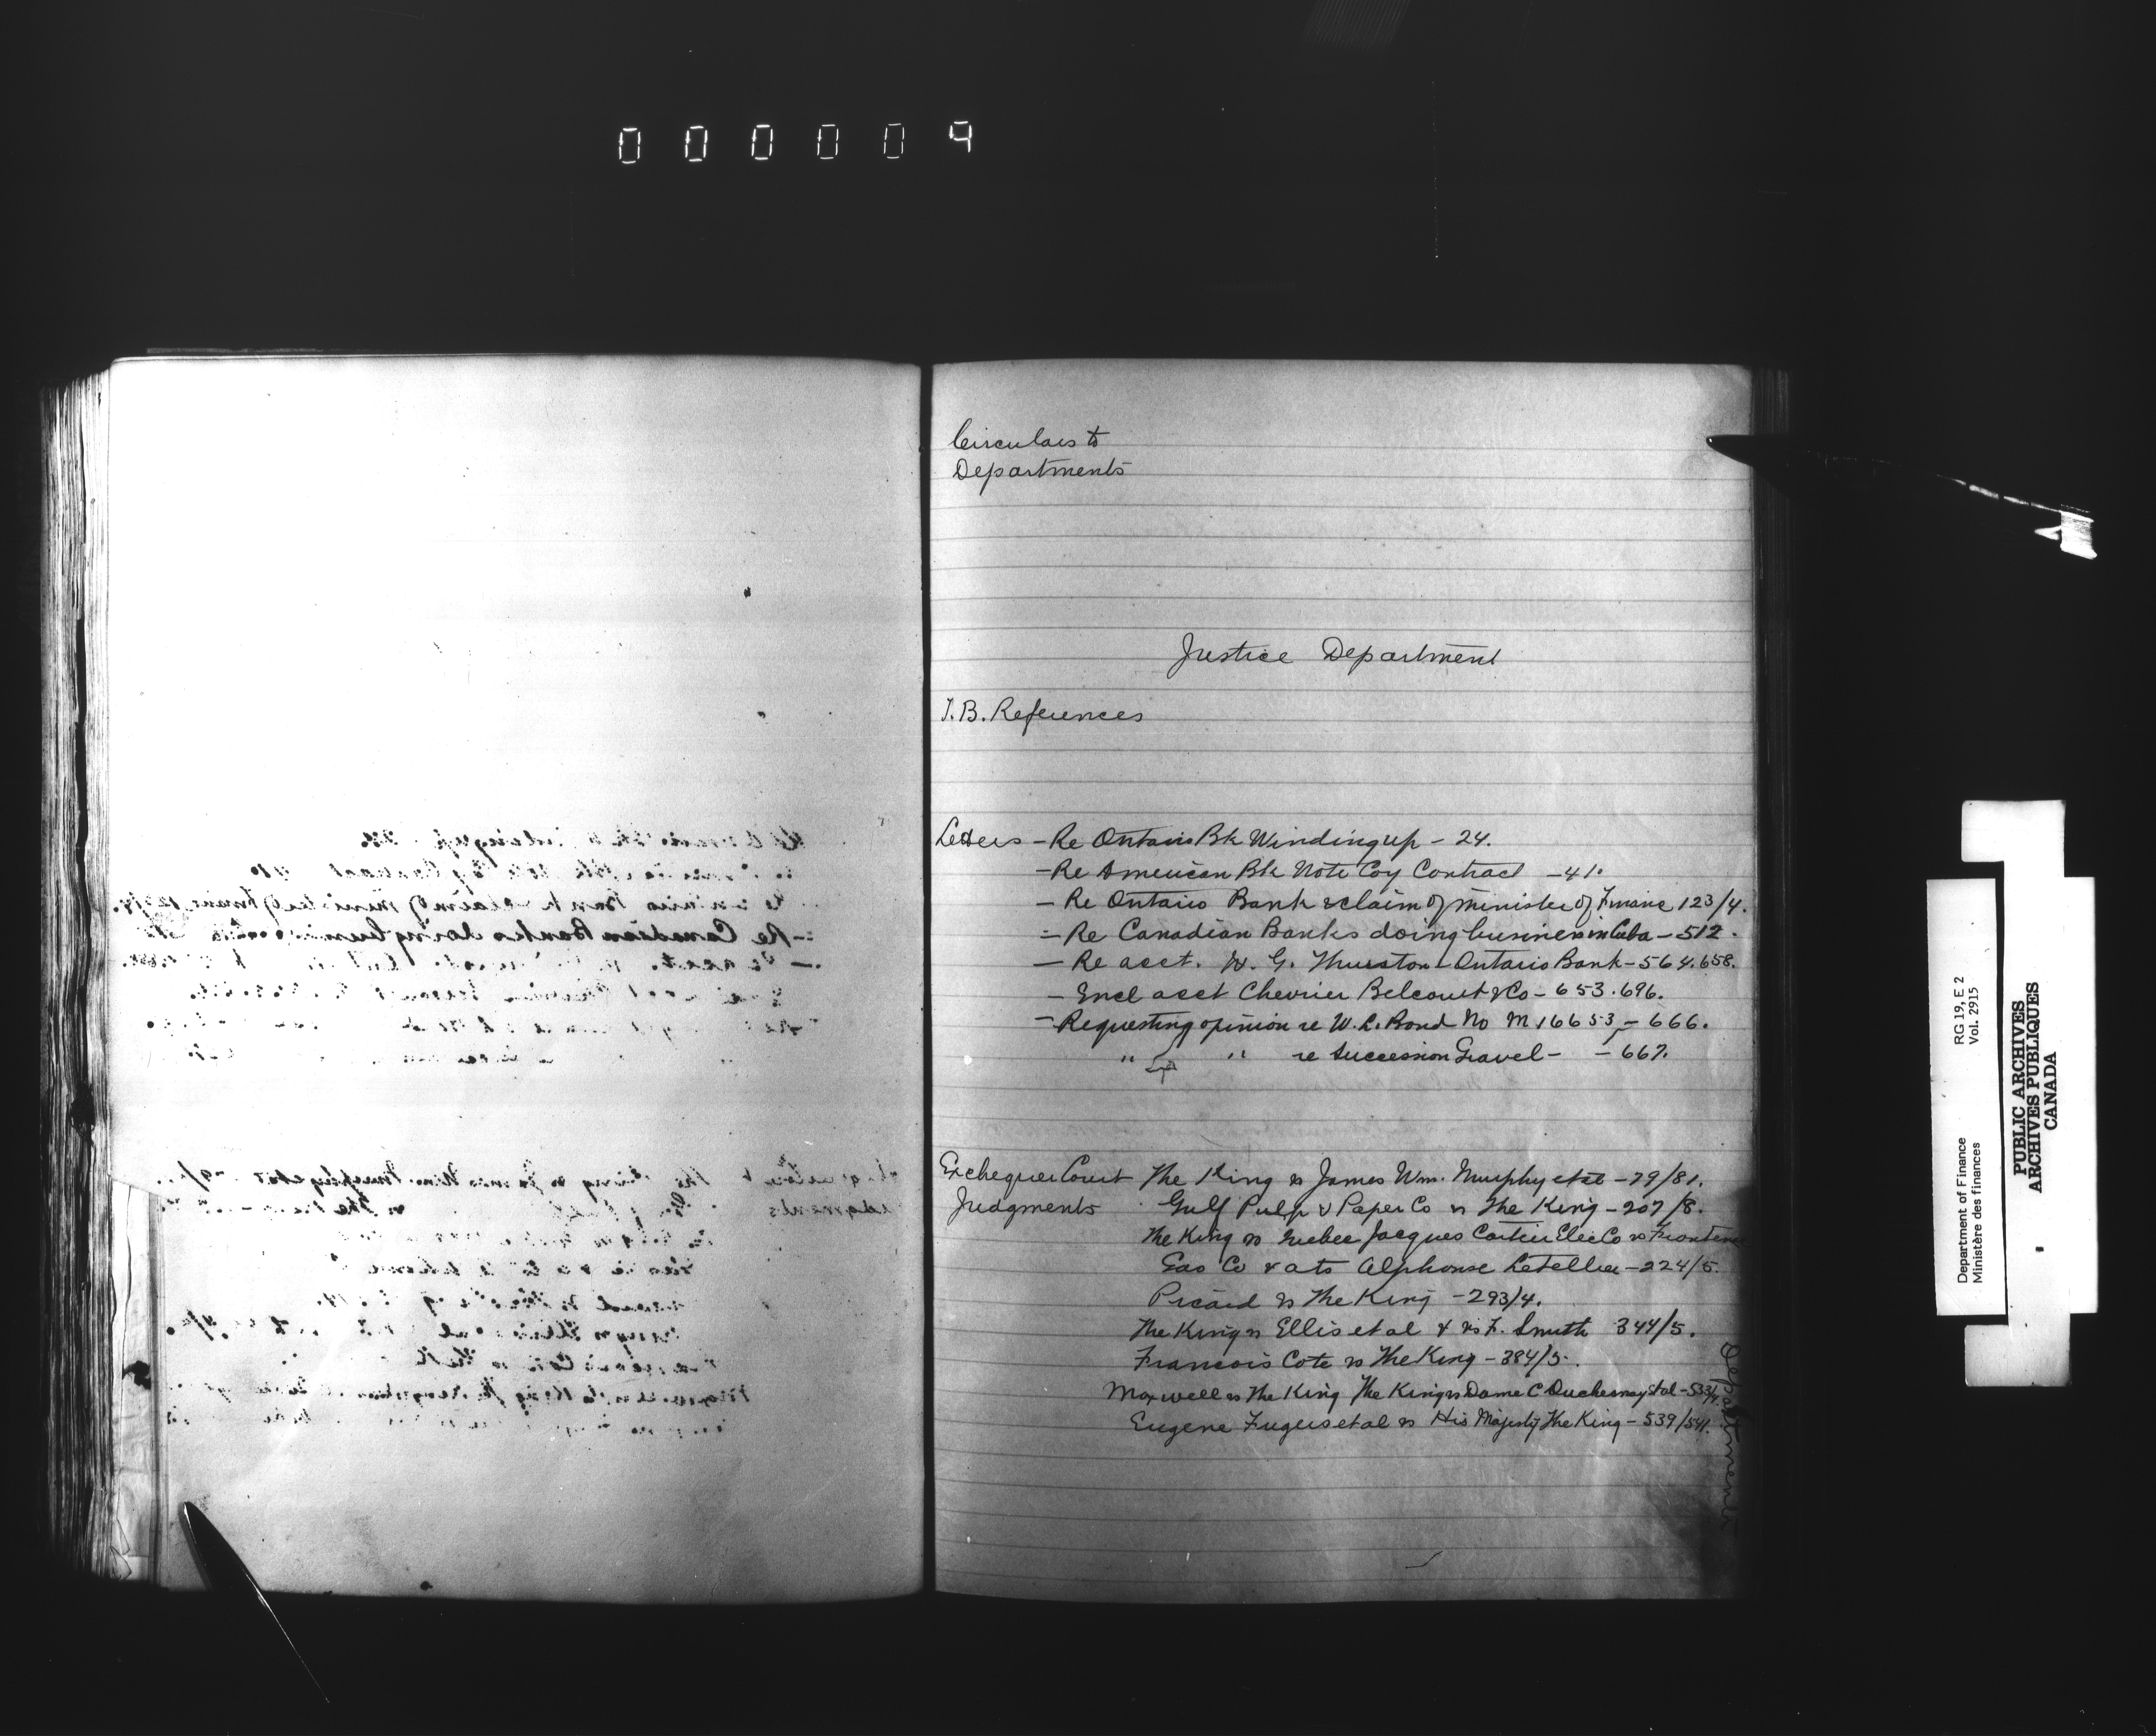 000009
Circulars to
Departments
Justice Department
T.B. References
Letters - Re Ontario Bk Winding up - 24.
- Re American Bk Note Coy Contract - 41.
- Re Ontario Bank & claim of Minister of Finance 123/4.
- Re Canadian Banks doing business in Cuba - 512.
- Re acct. W. G. Thurston - Ontario Bank - 564.658.
- Encl acct Chevrier Belcourt & Co - 653.696.
- Requesting opinion re W. L. Bond No M 16653 - 666.
" " re Succession Gravel - - 667.
Exchequer Court The King vs James Wm. Murphy et al - 79/81.
Judgments Gulf Pulp & Paper Co vs The King - 207/8.
The King vs Quebec Jacques Cartier Elec Co vs Frontenac
Gas Co & ats Alphonse Letellier - 224/5.
Picard vs The King - 293/4.
The King vs Ellis et al & vs F. Smith 344/5.
Francois Cote vs The King - 384/5.
Maxwell vs The King The King vs Dame C Duchesnay et al - 533/4.
Eugene Fugere et al vs His Majesty The King - 539/541.
Departments
Department of Finance
Ministère des finances
RG 19, E 2
Vol. 2915
PUBLIC ARCHIVES
ARCHIVES PUBLIQUES
CANADA